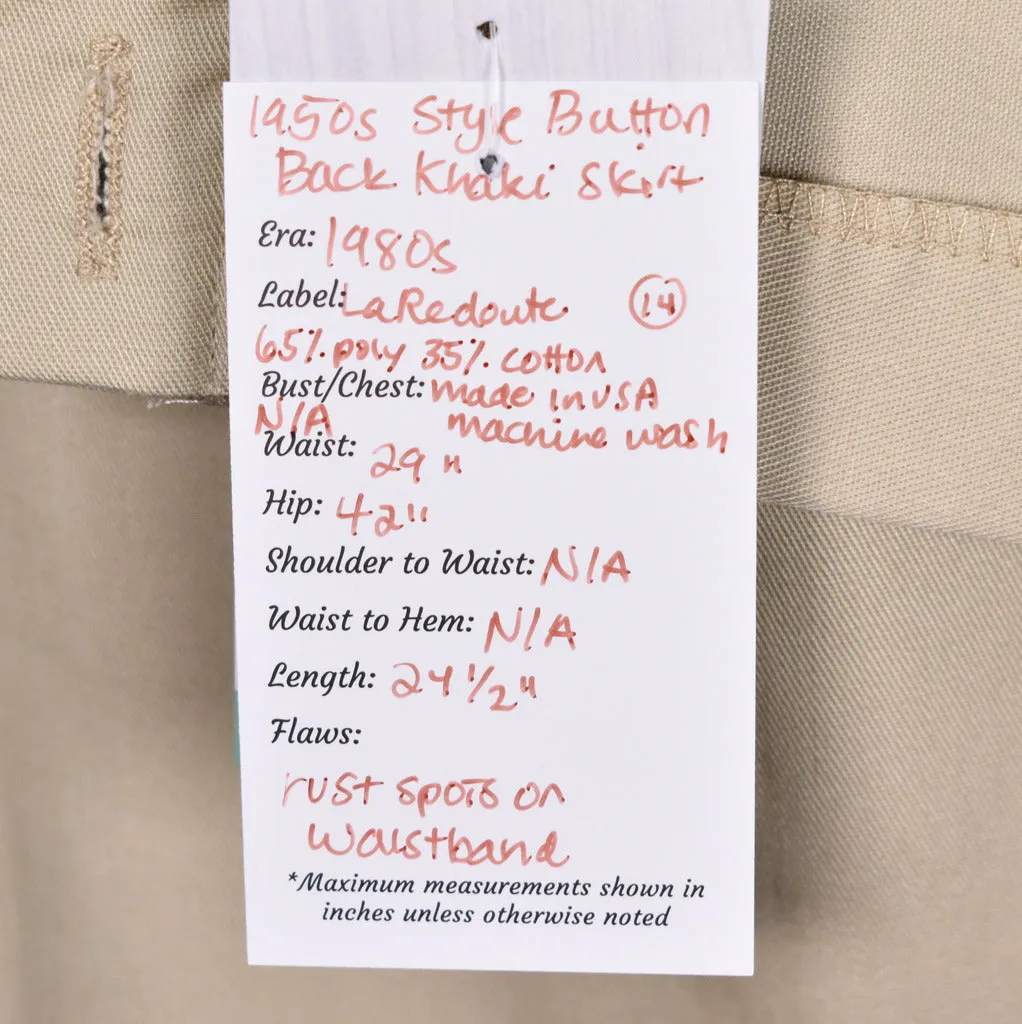 1950s Style Button
Back Khaki Skirt
Era: 1980s
Label: La Redoute 14
65% poly 35% cotton
Bust/Chest: made in USA
N/A machine wash
Waist: 29"
Hip: 42"
Shoulder to Waist: N/A
Waist to Hem: N/A
Length: 24 1/2"
Flaws:
rust spots on
waistband
*Maximum measurements shown in
inches unless otherwise noted